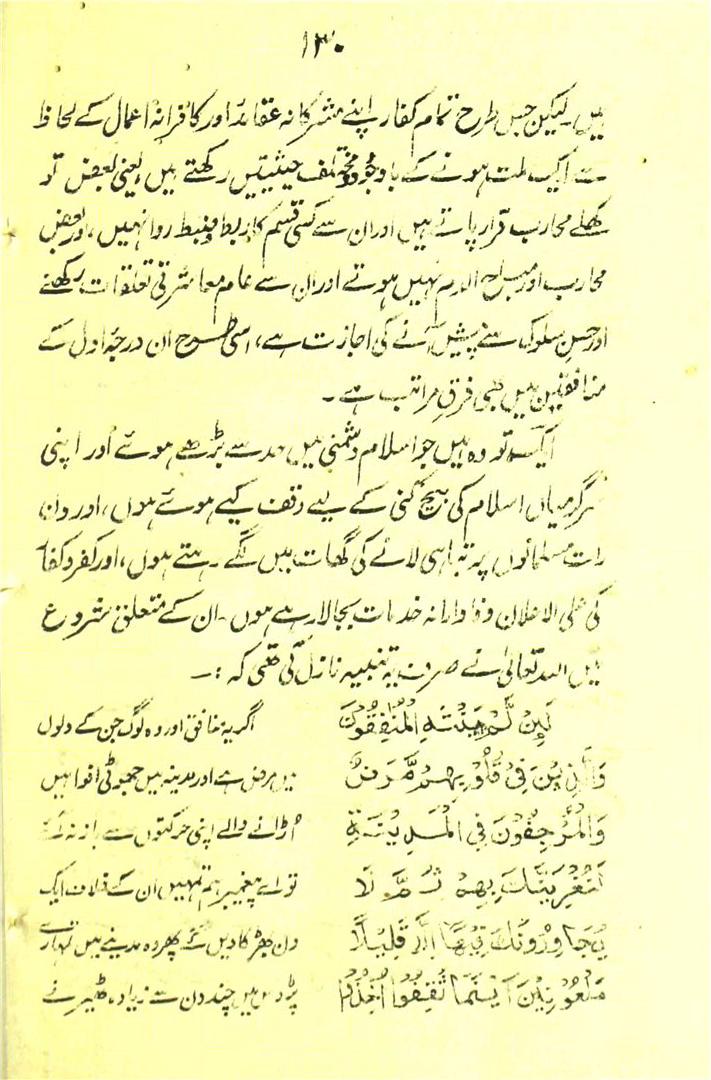 ۱۳۰
ہیں۔ لیکن جس طرح تمام کفار اپنے مشرکانہ عقائد اور کافرانہ اعمال کے لحاظ
سے ایک ملت ہونے کے باوجود مختلف حیثیتیں رکھتے ہیں، یعنی بعض تو
کھلے محارب قرار پاتے ہیں اور ان سے کسی قسم کا ربط و ضبط روا نہیں، اور بعض
محارب اور مباح الدم نہیں ہوتے اور ان سے عام معاشرتی تعلقات رکھنے
اور حسن سلوک سے پیش آنے کی اجازت ہے، اسی طرح ان درجۂ اول کے
منافقین میں بھی فرقِ مراتب ہے۔
ایک تو وہ ہیں جو اسلام دشمنی میں حد سے بڑھے ہوئے اور اپنی
سرگرمیاں اسلام کی بیخ کنی کے لیے وقف کیے ہوئے ہوں، اور دن
رات مسلمانوں پر تباہی لانے کی گھات میں لگے رہتے ہوں، اور کفر و کفار
کی علی الاعلان وفادارانہ خدمات بجا لا رہے ہوں۔ ان کے متعلق شروع
میں اللہ تعالیٰ نے صرف یہ تنبیہ نازل کی تھی کہ :۔
لَئِنْ لَّمْ يَنْتَهِ الْمُنٰفِقُوْنَ اگر یہ منافق اور وہ لوگ جن کے دلوں
وَالَّذِيْنَ فِيْ قُلُوْبِهِمْ مَّرَضٌ میں مرض ہے اور مدینہ میں جھوٹی افواہیں
وَّالْمُرْجِفُوْنَ فِي الْمَدِيْنَةِ اڑانے والے اپنی حرکتوں سے باز نہ آئے
لَنُغْرِيَنَّكَ بِهِمْ ثُمَّ لَا تو اے پیغمبر ہم تمہیں ان کے خلاف ایک
يُجَاوِرُوْنَكَ فِيْهَا اِلَّا قَلِيْلًا دن بھڑکا دیں گے پھر وہ مدینے میں تمہارے
مَلْعُوْنِيْنَ اَيْنَمَا ثُقِفُوْا اُخِذُوْا پڑوس میں چند دن سے زیادہ ٹھیرنے